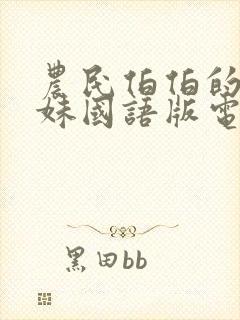 農民伯伯的
妹國語版電
黑田bb